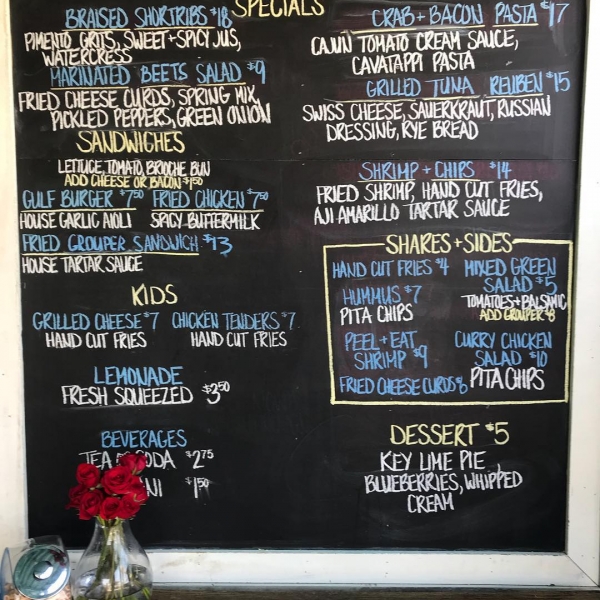 SPECIALS
BRAISED SHORTRIBS $18
PIMENTO GRITS, SWEET+SPICY JUS,
WATERCRESS
MARINATED BEETS SALAD $9
FRIED CHEESE CURDS, SPRING MIX,
PICKLED PEPPERS, GREEN ONION
CRAB + BACON PASTA $17
CAJUN TOMATO CREAM SAUCE,
CAVATAPPI PASTA
GRILLED TUNA REUBEN $15
SWISS CHEESE, SAUERKRAUT, RUSSIAN
DRESSING, RYE BREAD
SHRIMP + CHIPS $14
FRIED SHRIMP, HAND CUT FRIES,
AJI AMARILLO TARTAR SAUCE
SANDWICHES
LETTUCE, TOMATO, BRIOCHE BUN
ADD CHEESE OR BACON $1.50
GULF BURGER $7.50 FRIED CHICKEN $7.50
HOUSE GARLIC AIOLI SPICY BUTTERMILK
FRIED GROUPER SANDWICH $13
HOUSE TARTAR SAUCE
KIDS
GRILLED CHEESE $7 CHICKEN TENDERS $7
HAND CUT FRIES HAND CUT FRIES
LEMONADE
FRESH SQUEEZED $3.50
BEVERAGES
TEA SODA $2.75
$1.50
SHARES + SIDES
HAND CUT FRIES $4
HUMMUS $7
PITA CHIPS
PEEL + EAT
SHRIMP $9
FRIED CHEESE CURDS
MIXED GREEN
SALAD $5
TOMATOES + BALSAMIC
ADD GROUPER $8
CURRY CHICKEN
SALAD $10
PITA CHIPS
DESSERT $5
KEY LIME PIE,
BLUEBERRIES, WHIPPED
CREAM